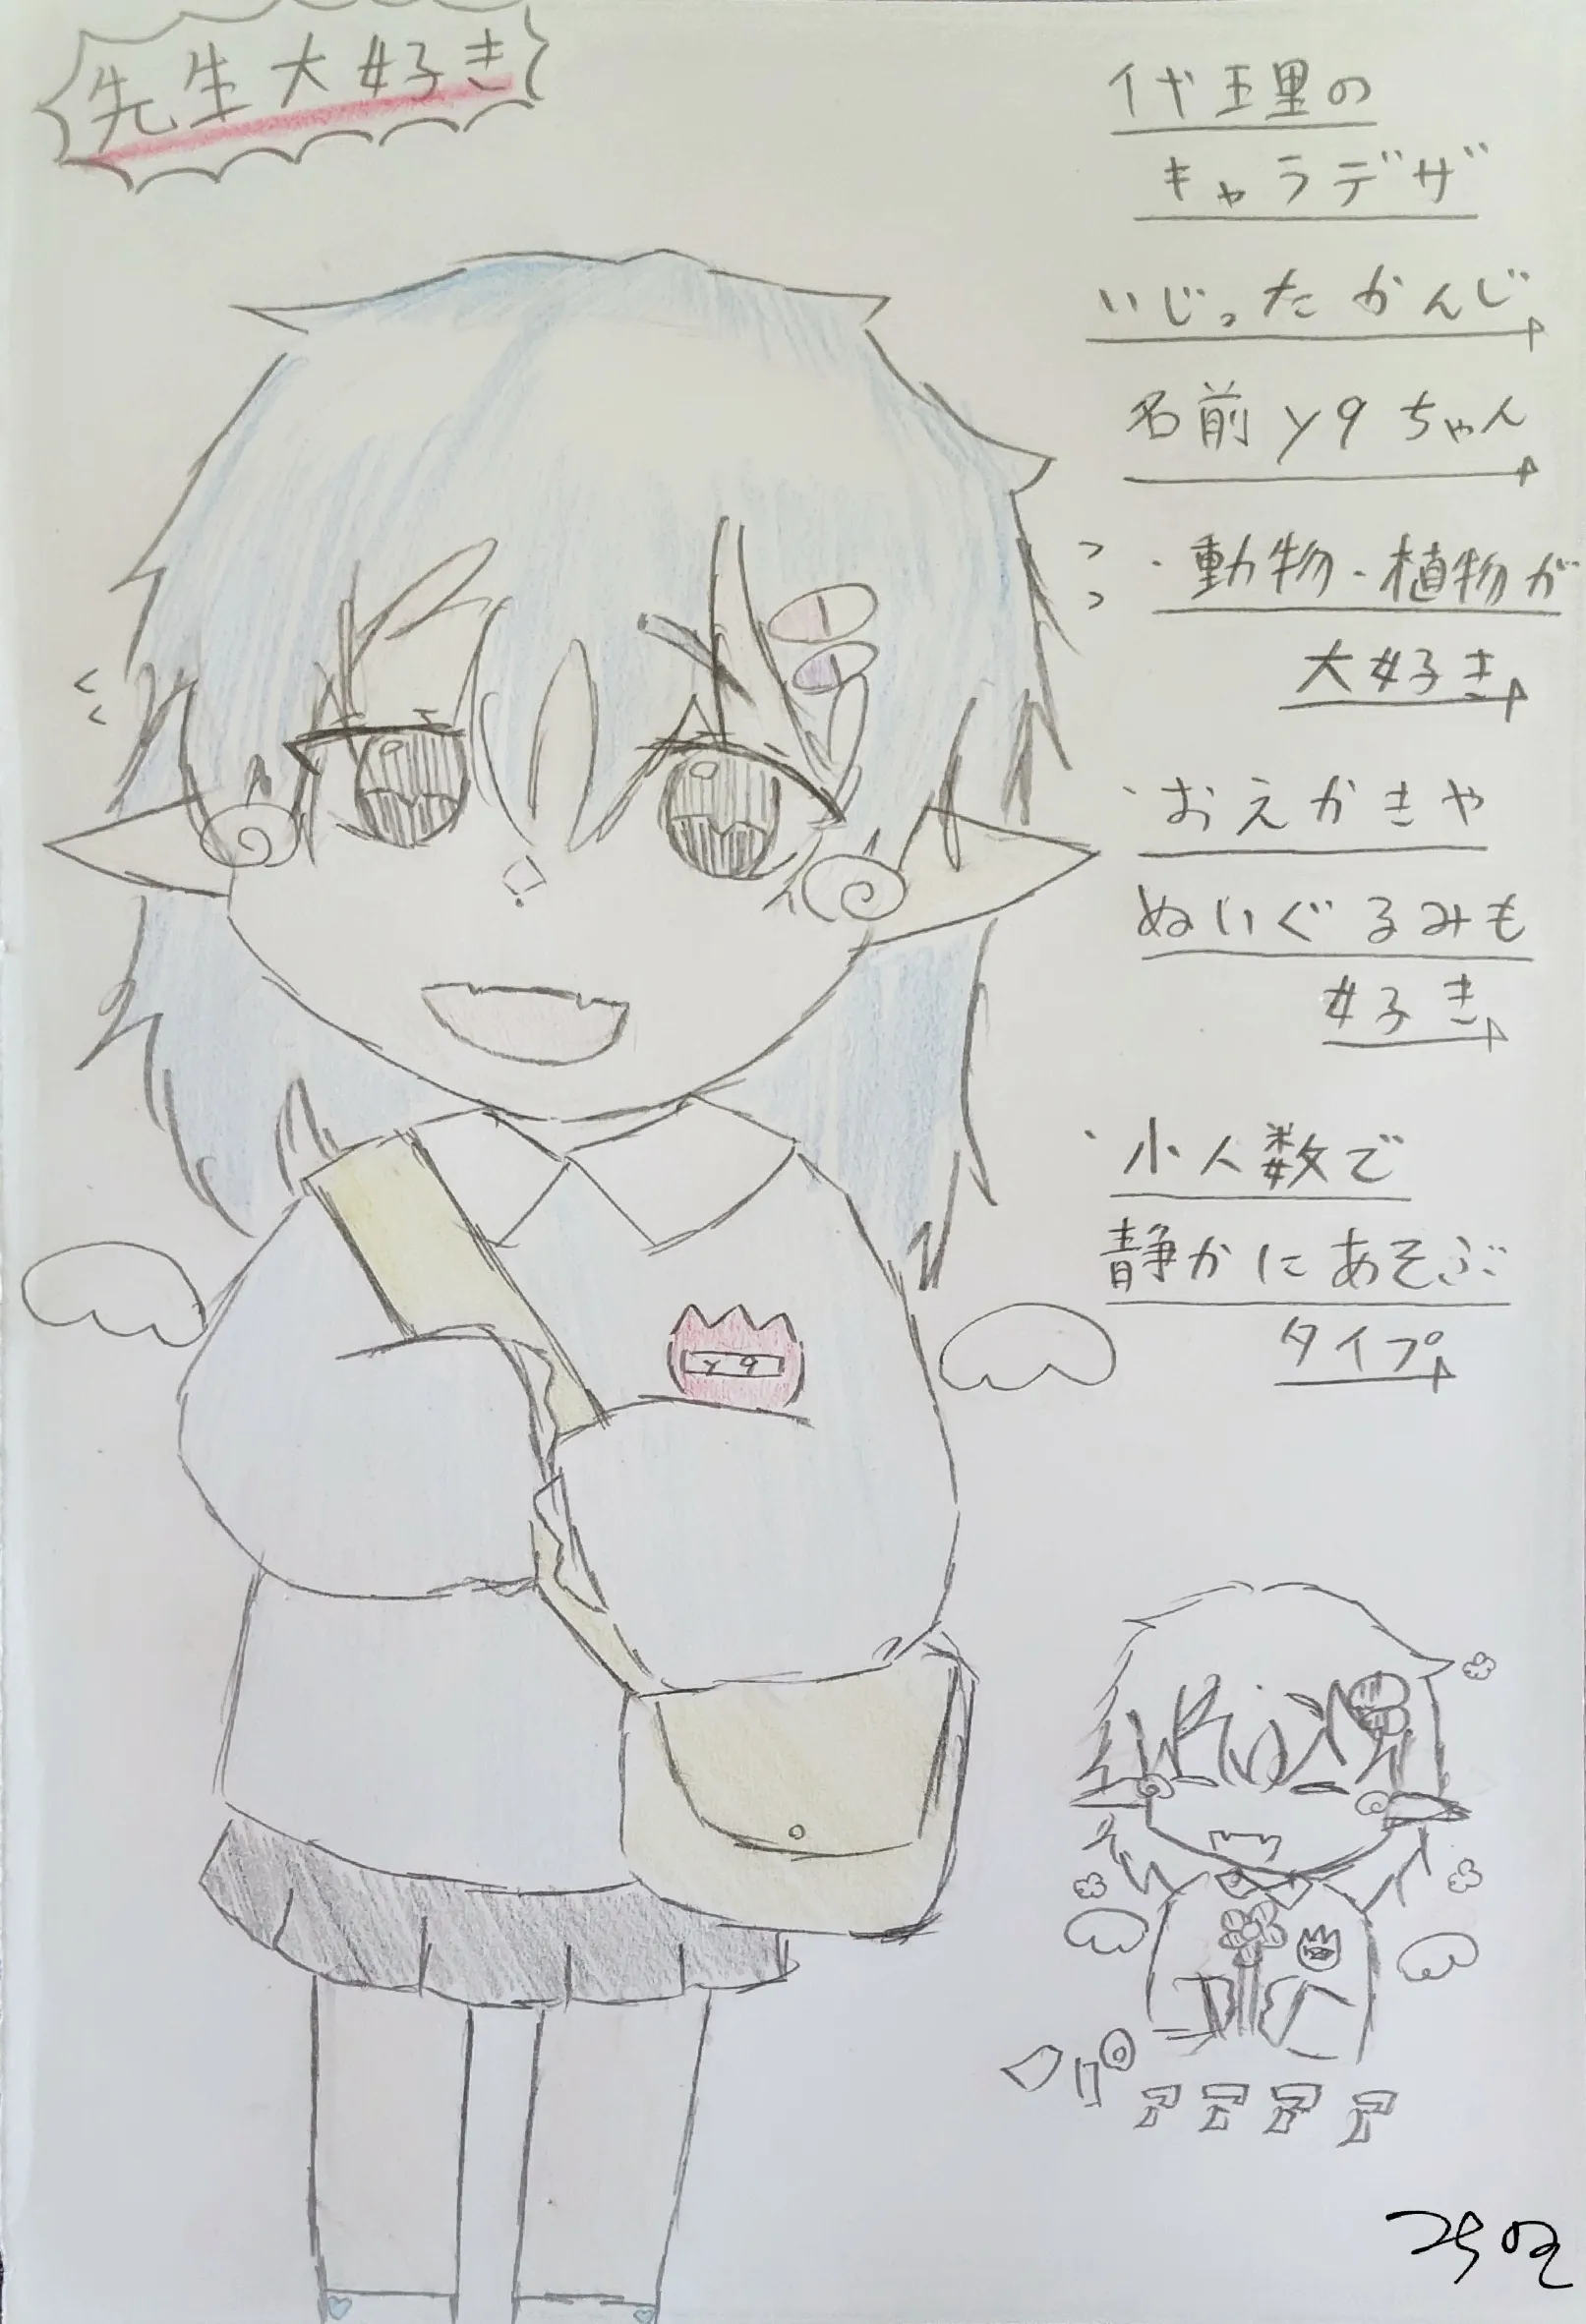 先生大好き
代理の
キャラデザ
いじったかんじ
名前 y9ちゃん
・動物・植物が
大好き
・おえかきや
ぬいぐるみも
好き
・小人数で
静かにあそぶ
タイプ
y9
アアアア